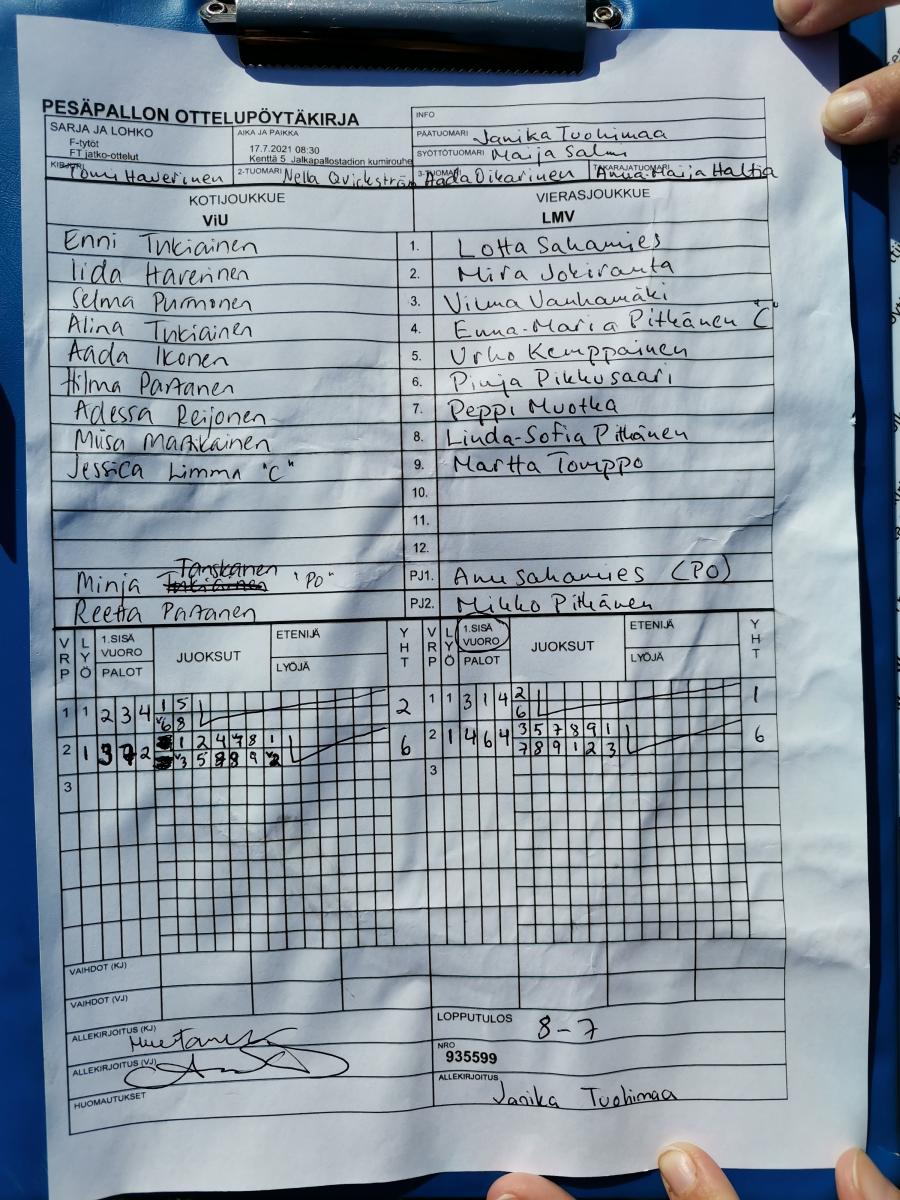 PESÄPALLON OTTELUPÖYTÄKIRJA
INFO
SARJA JA LOHKO
F-tytöt
FT jatko-ottelut
AIKA JA PAIKKA
17.7.2021 08:30
Kenttä 5 Jalkapallostadion kumirouhe
PÄÄTUOMARI Janika Tuohimaa
SYÖTTÖTUOMARI Maija Salmi
KIRJURI Tomi Haverinen
2-TUOMARI Nella Qvickström
3-TUOMARI Aada Oikarinen
TAKARAJATUOMARI Anna-Maija Haltia
KOTIJOUKKUE VIERASJOUKKUE
ViU LMV
Enni Tukiainen 1. Lotta Sahamies
Iida Haverinen 2. Mira Jokiranta
Selma Purmonen 3. Vilma Vanhamäki
Alina Tukiainen 4. Enna-Maria Pitkänen "C"
Aada Ikonen 5. Urho Kemppainen
Hilma Partanen 6. Pinja Pikkusaari
Adessa Reijonen 7. Peppi Muotka
Miisa Markkainen 8. Linda-Sofia Pitkänen
Jessica Limma "C" 9. Martta Tomppo
10.
11.
12.
Minja Tanskanen "PO" PJ1. Anu Sahamies (PO)
Reetta Partanen PJ2. Mikko Pitkänen
VRP LYÖ 1.SISÄ VUORO PALOT JUOKSUT ETENIJÄ LYÖJÄ YHT VRP LYÖ 1.SISÄ VUORO PALOT JUOKSUT ETENIJÄ LYÖJÄ YHT
1 1 2 3 4 1 5 2 1 1 3 1 4 2 1
v6 8 6
2 1 3 7 2 1 2 4 7 8 1 6 2 1 4 6 4 3 5 7 8 9 1 6
v3 5 8 8 9 v2 7 8 9 1 2 3
3 3
VAIHDOT (KJ)
VAIHDOT (VJ)
ALLEKIRJOITUS (KJ)
LOPPUTULOS 8-7
ALLEKIRJOITUS (VJ)
NRO
935599
HUOMAUTUKSET
ALLEKIRJOITUS
Janika Tuohimaa